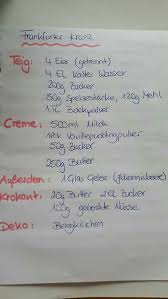 Frankfurter Kranz
Teig: 4 Eier (getrennt)
4 EL kaltes Wasser
200g Zucker
80g Speisestärke, 120g Mehl
1 TL Backpulver
Creme: 500ml Milch
1 Pck Vanillepuddingpulver
50g Zucker
250g Butter
Außerdem: 1 Glas Gelee (Johannisbeere)
Krokant: 20g Butter 2EL Zucker
100g gehackte Nüsse
Deko: Belegkirschen